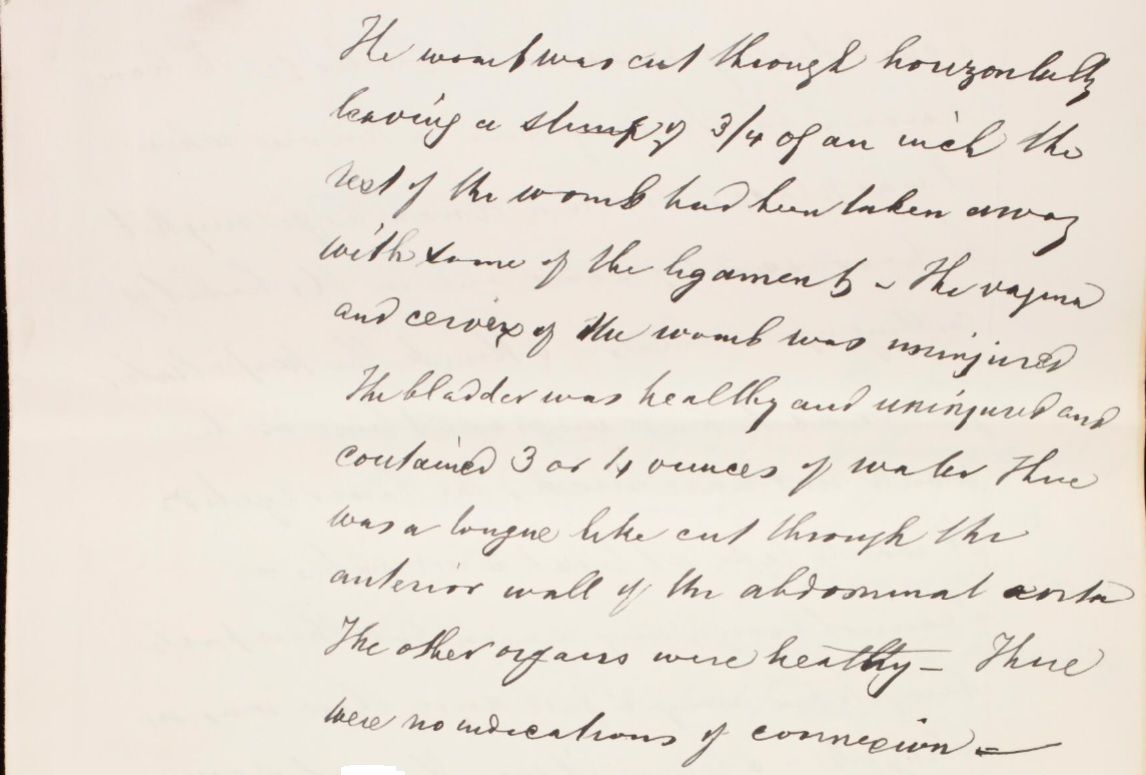 The womb was cut through horizontally
leaving a stump of 3/4 of an inch the
rest of the womb had been taken away
with some of the ligaments - The vagina
and cervix of the womb was uninjured
The bladder was healthy and uninjured and
contained 3 or 4 ounces of water There
was a tongue like cut through the
anterior wall of the abdominal aorta
The other organs were healthy - There
were no indications of connexion -